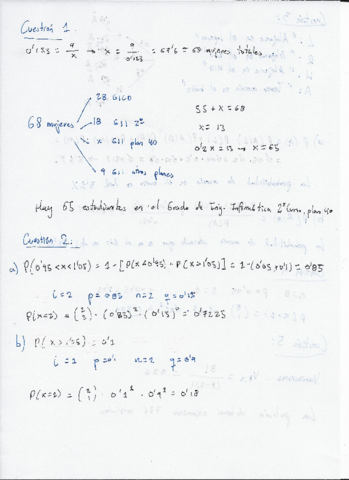 Cuestión 1.
0'133 = 9/x → x = 9/0'133 = 67'6 ≈ 68 mujeres totales
28 GICO
68 mujeres 18 GII 2º
x GII plan 40
9 GII otros planes
55 + x = 68
x = 13
0'2x = 13 → x = 65
Hay 65 estudiantes en el Grado de Ing. Informática 2º Curso, plan 40
Cuestión 2.
a) P(0'95 < x < 1'05) = 1 - [P(x < 0'95) - P(x > 1'05)] = 1 - (0'05 + 0'1) = 0'85
i = 2 p = 0'85 n = 2 q = 0'15
P(x = 2) = (2 2) · (0'85)² · (0'15)⁰ = 0'7225
b) P(x > 1'05) = 0'1
i = 1 p = 0'1 n = 2 q = 0'9
P(x = 1) = (2 1) · 0'1¹ · 0'9¹ = 0'18